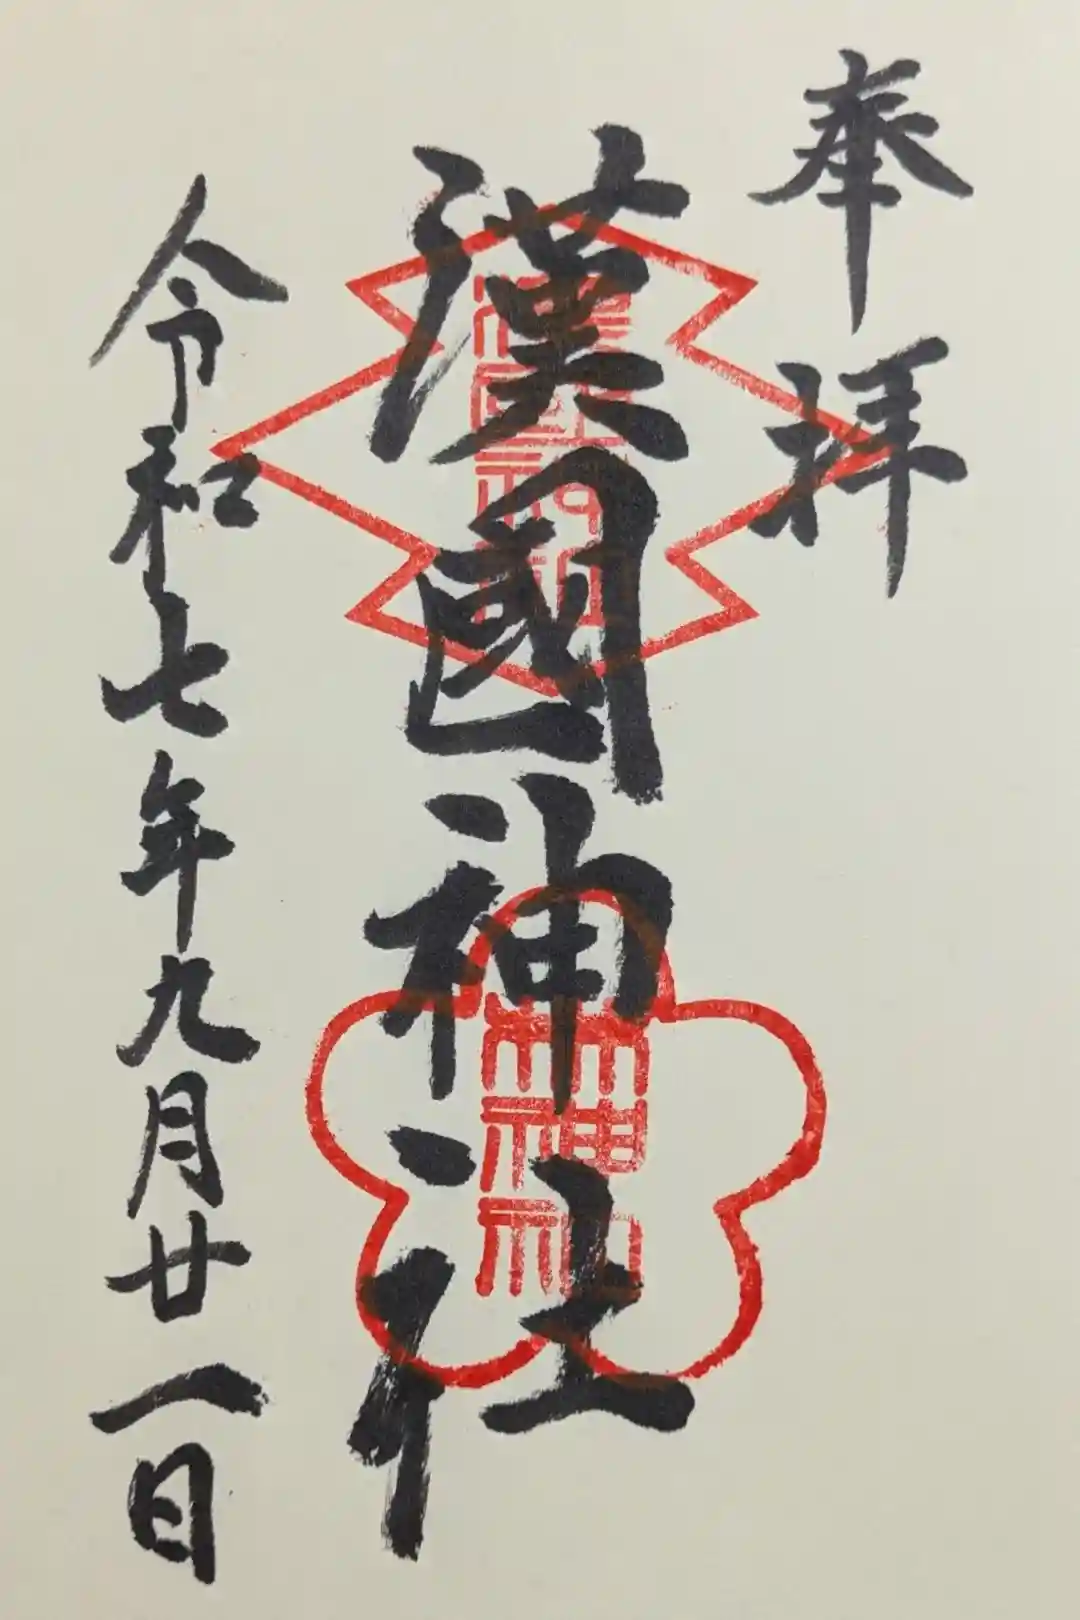 奉拝
漢國神社
漢國神社
林神社
令和七年九月廿一日